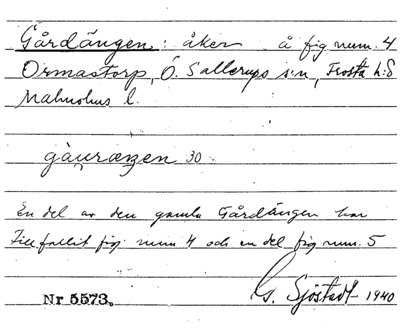 Gårdängen : åker å fig num. 4
Ormastorp, Ö. Sallerups s:n, Frosta h:d
Malmöhus l.
gàuræŋen 30
En del av den gamla Gårdängen har
Tillfallit fig. num 4 och en del fig num. 5
Nr 5573. G. Sjöstedt 1940